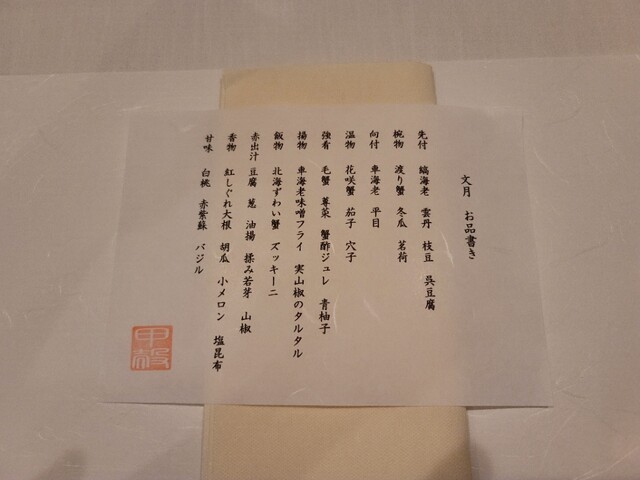 文月 お品書き
先付 縞海老 雲丹 枝豆 呉豆腐
椀物 渡り蟹 冬瓜 茗荷
向付 車海老 平目
温物 花咲蟹 茄子 穴子
強肴 毛蟹 蓴菜 蟹酢ジュレ 青柚子
揚物 車海老味噌フライ 実山椒のタルタル
飯物 北海ずわい蟹 ズッキーニ
赤出汁 豆腐 葱 油揚 揉み若芽 山椒
香物 紅しぐれ大根 胡瓜 小メロン 塩昆布
甘味 白桃 赤紫蘇 バジル
甲殻